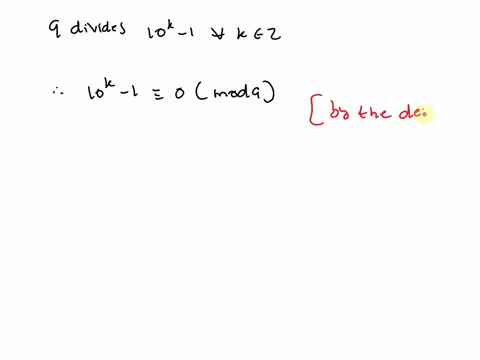 9 divides 10^k-1 ∀ k ∈ Z
∴ 10^k-1 ≡ 0 (mod 9)
[by the de